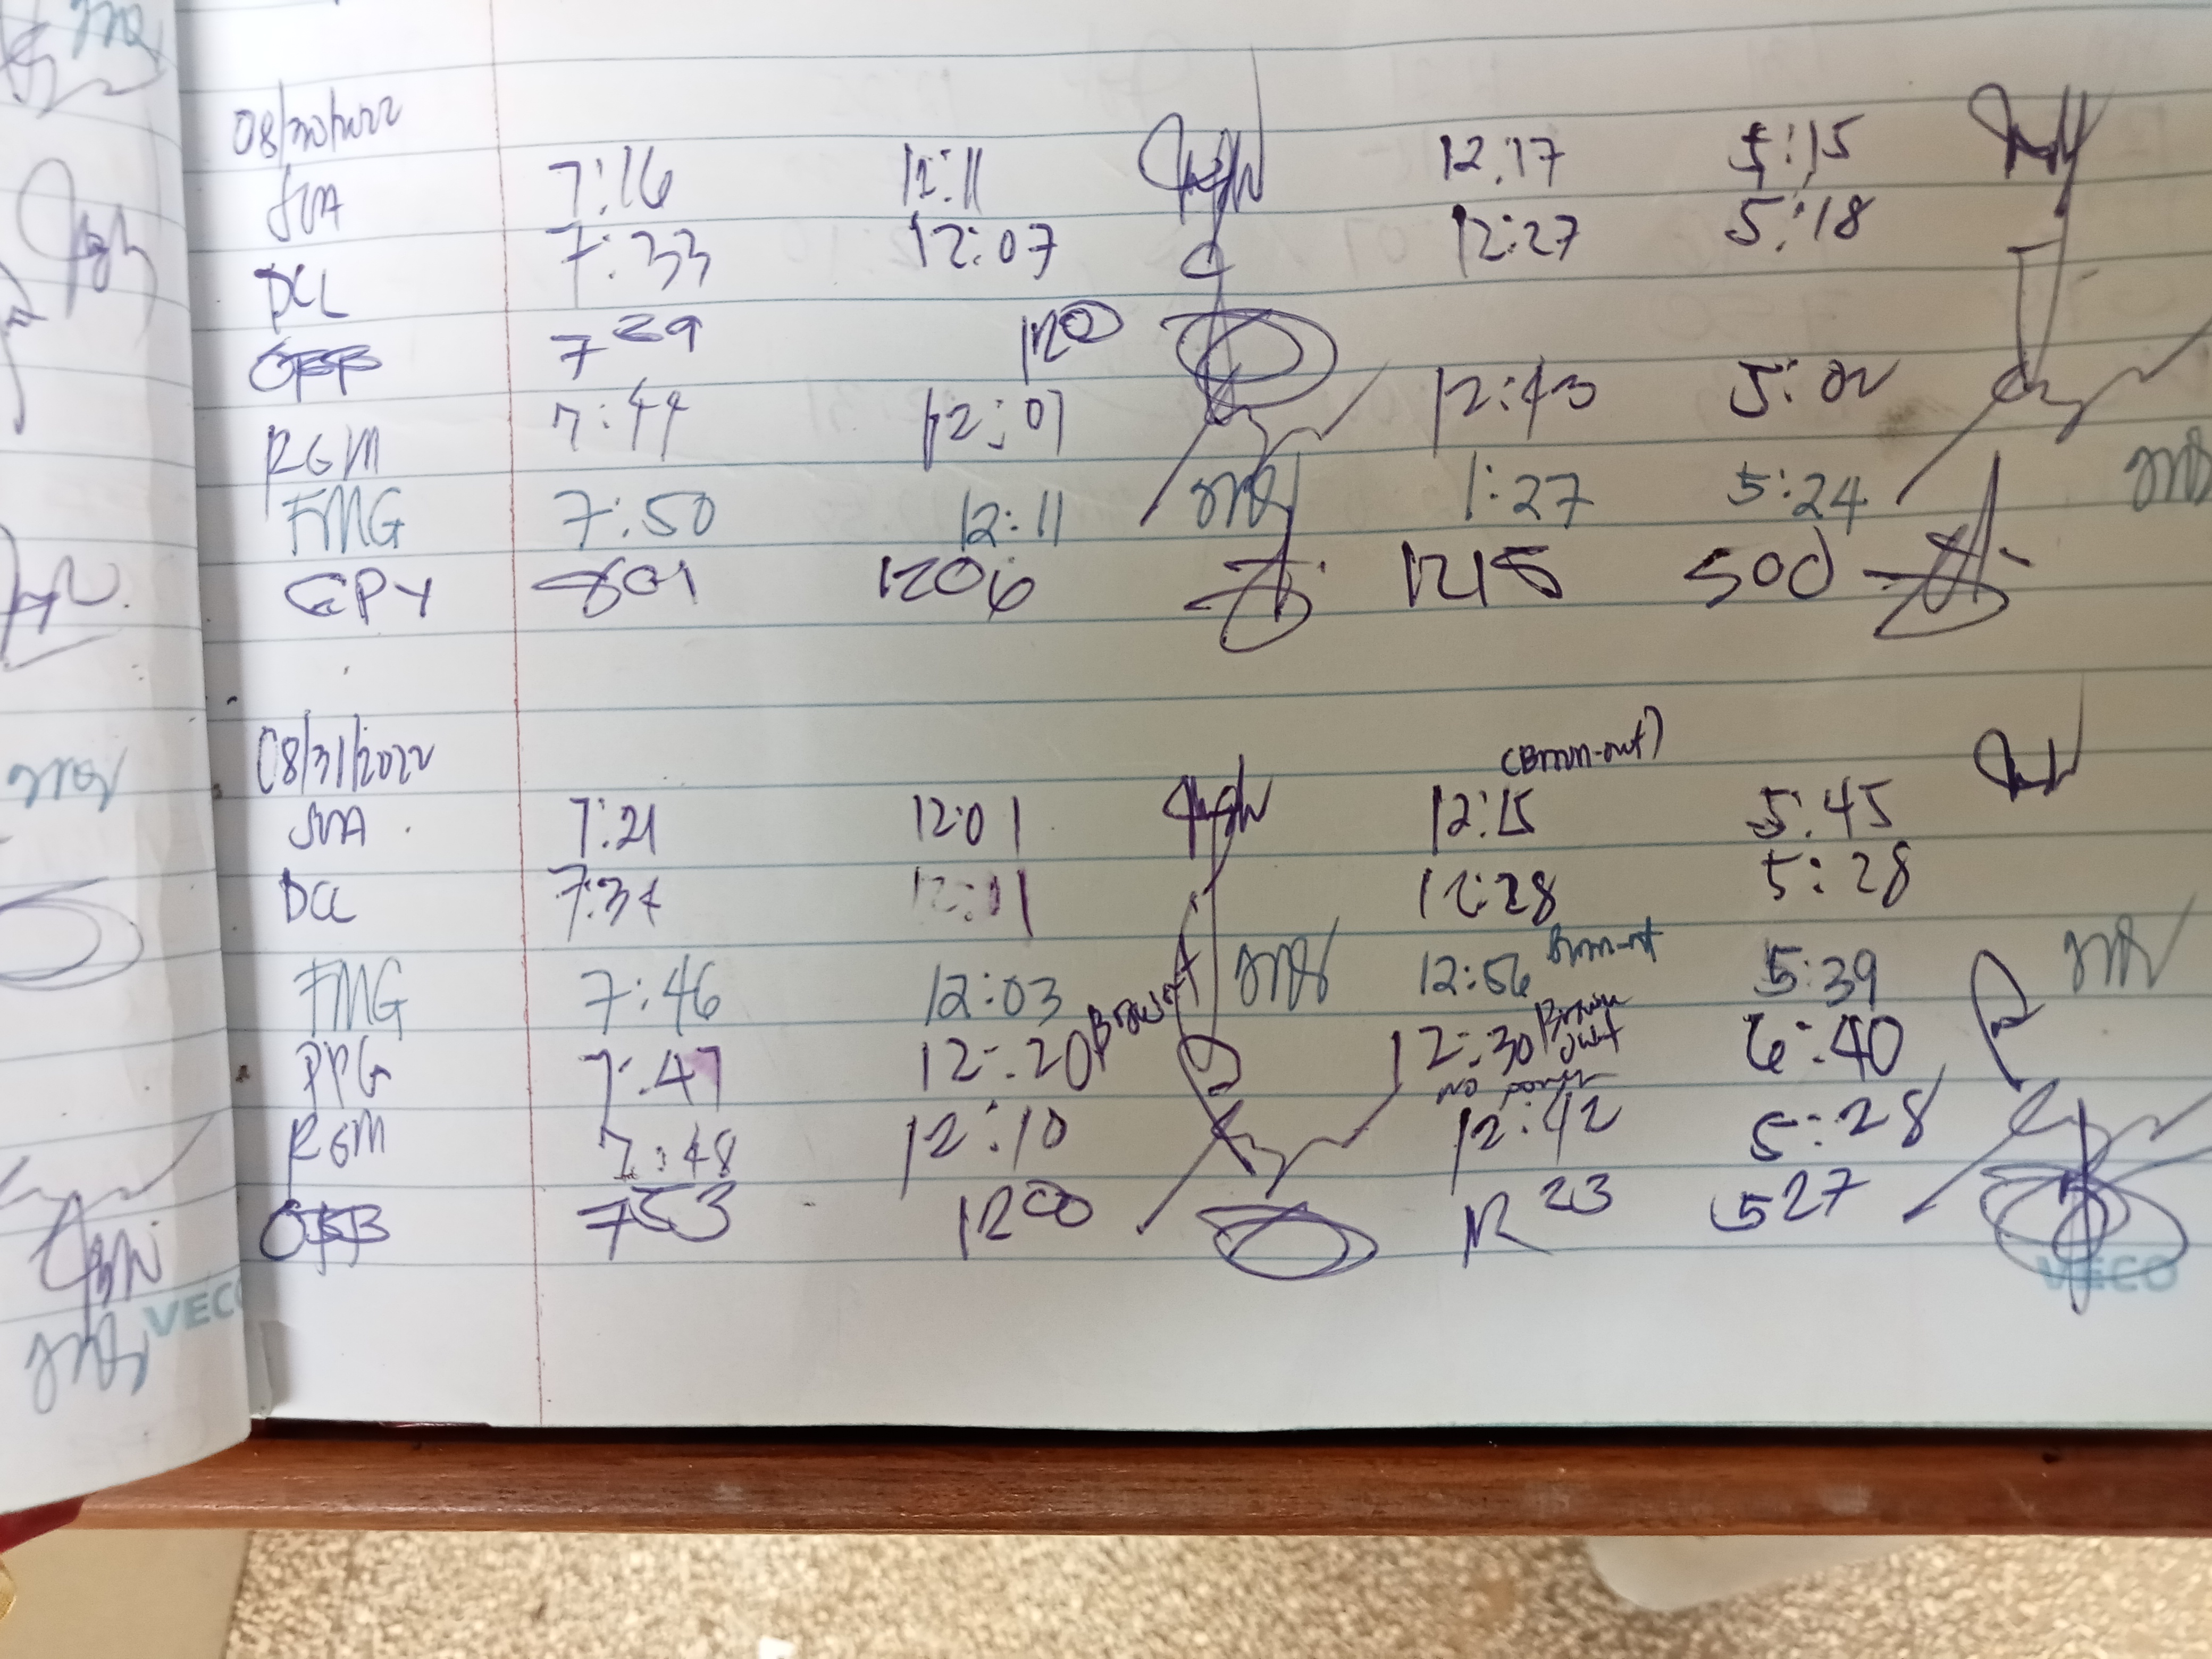 08/30/2022
JVA 7:16 12:11 12:17 5:15
DCL 7:33 12:07 12:27 5:18
7 29 12 00
RGM 7:44 12:07 12:43 5:02
FMG 7:50 12:11 1:27 5:24
GPY 801 1206 1215 500
08/31/2022 (Brown-out)
JVA 7:21 12:01 12:15 5:45
DCL 7:34 12:01 12:28 5:28
FMG 7:46 12:03 12:56 Brown-out 5:39
PPG 7:47 12:20 12:30 Brown out 6:40
no power
RGM 7:48 12:10 12:42 5:28
7 53 12 00 12 23 5 27
VECO
VECO